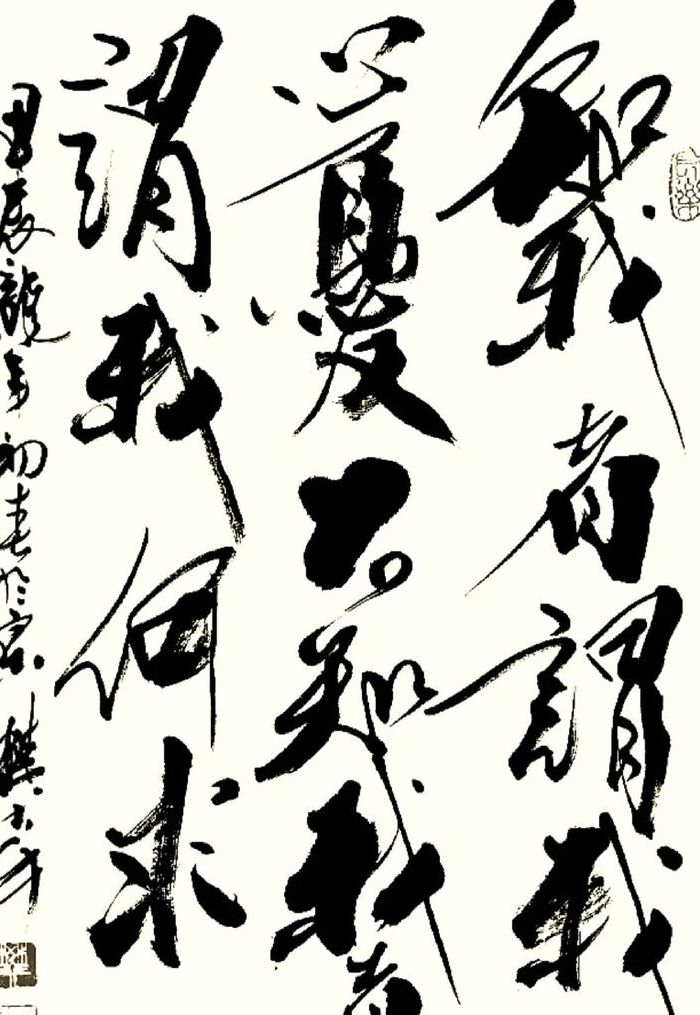 知我者謂我
心憂不知我者
謂我何求
甲辰龍年初春於京 樊